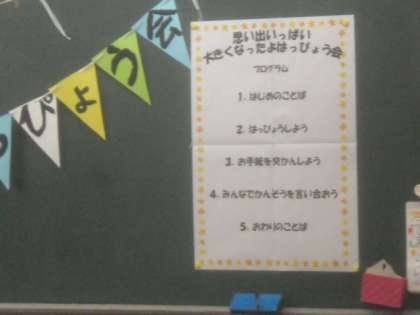 っぴょう会
思い出いっぱい
大きくなったよはっぴょう会
プログラム
1. はじめのことば
2. はっぴょうしよう
3. お手紙を交かんしよう
4. みんなでかんそうを言い合おう
5. おわりのことば